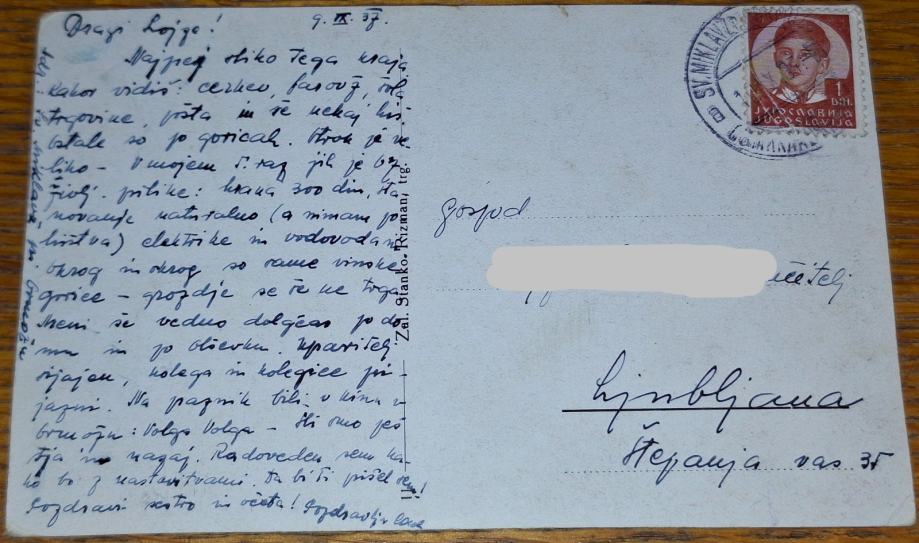 Dragi Lojze!
9. IX. 37.
Najprej sliko tega kraja
kakor vidiš: cerkev, farovž, šola
trgovine, pošta in še nekaj hiš
ostale so po goricah. Otrok je ve
liko – V mojem 5. raz jih je
življ. prilike: hrana 300 din, sta
novanje naturalno (a nimam po
hištva) elektrike in vodovoda ni
okrog in okrog so same vinske
gorice – grozdje se še ne trga
Meni še vedno dolgčas po do
mu in po Upravitelj
sijajen, kolega in kolegice pri
jazni. Na praznik bili v kinu v
Ormožu: Volga Volga – šli smo peš
tja in nazaj. Radoveden sem ka
ko bo z nastavitvami. Ta bi ti pišel
Pozdravi sestro in očeta! Pozdravlja
Sv. Miklavž pri Ormožu
Zal. Stanko Rizman, trg.
SV. MIKLAVŽ
1
DIN.
ЈУГОСЛАВИЈА
JUGOSLAVIJA
Gospod
učitelj
Ljubljana
Štepanja vas 35